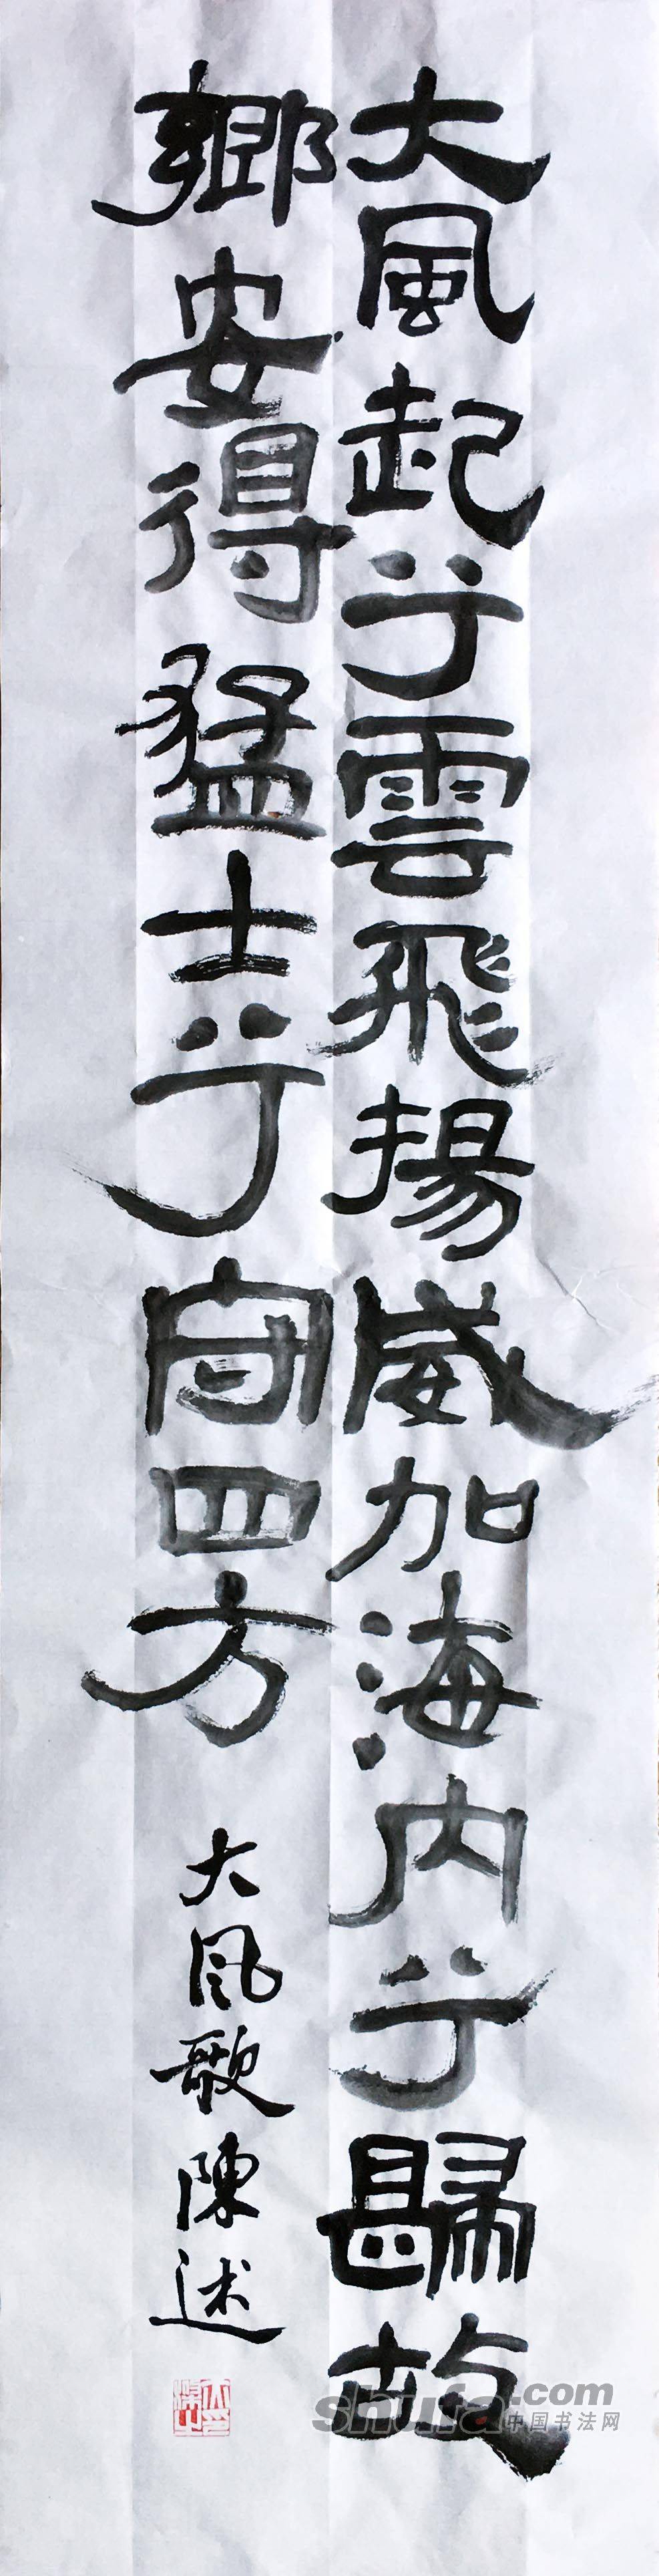 大風起兮雲飛揚威加海内兮歸故
鄉安得猛士兮守四方
大风歌陳述
shufa.com
中国书法网